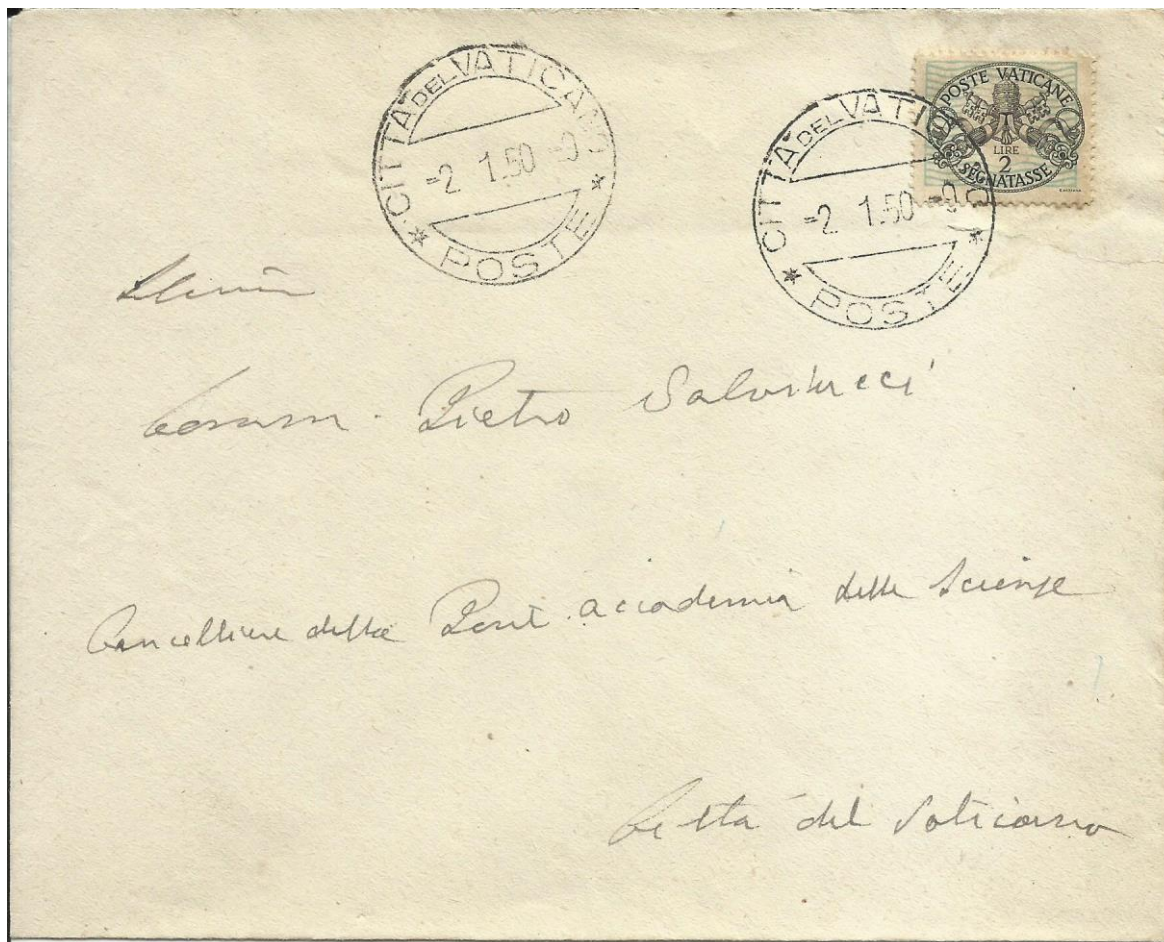 CITTÀ DEL VATICANO
-2 1.50 -0
* POSTE *
CITTÀ DEL VATICANO
-2 1.50 -0
* POSTE *
POSTE VATICANE
LIRE
2
SEGNATASSE
Comm. Pietro Salviucci
Cancelliere della Pont. Accademia delle Scienze
Città del Vaticano